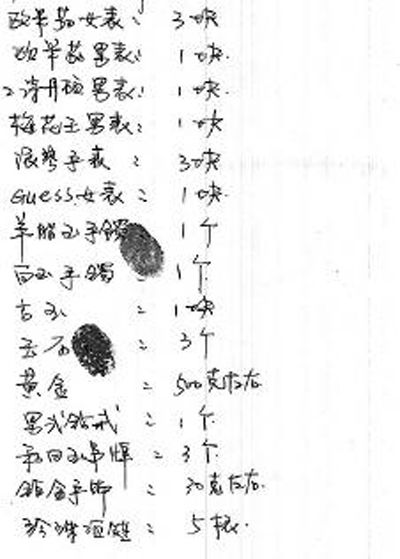 欧米茄女表: 3块
欧米茄男表: 1块
江诗丹顿男表: 1块
梅花王男表: 1块
浪琴手表: 3块
Guess女表: 1块
羊脂玉手镯 1个
白玉手镯 1个
古玉 : 1块
玉石 : 3个
黄金 : 500克左右
男式钻戒 : 1个
和田玉吊牌 : 3个
铂金手饰 : 30克左右
珍珠项链 : 5根